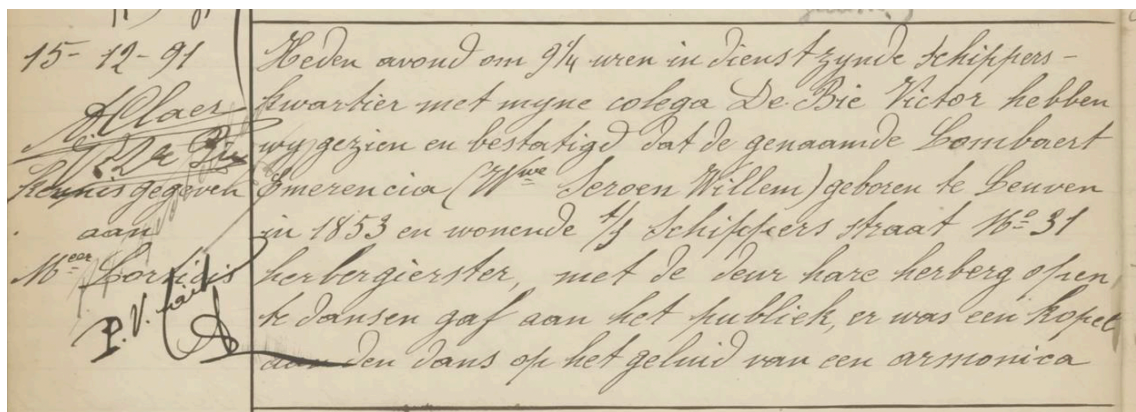 15-12-91
A. Claer
V. De Bie
Kennis gegeven
aan
Meer
P.V. fait
Heden avond om 9 1/4 uren in dienst zynde schippers-
kwartier met myne colega De Bie Victor hebben
wy gezien en bestatigd dat de genaamde Lombaert
Emerencia (Wwe Seroen Willem) geboren te Leuven
in 1853 en wonende t/s Schippers straat No 31
herbergierster, met de deur hare herberg open
te dansen gaf aan het publiek, er was een kopel
aan den dans op het geluid van een armonica